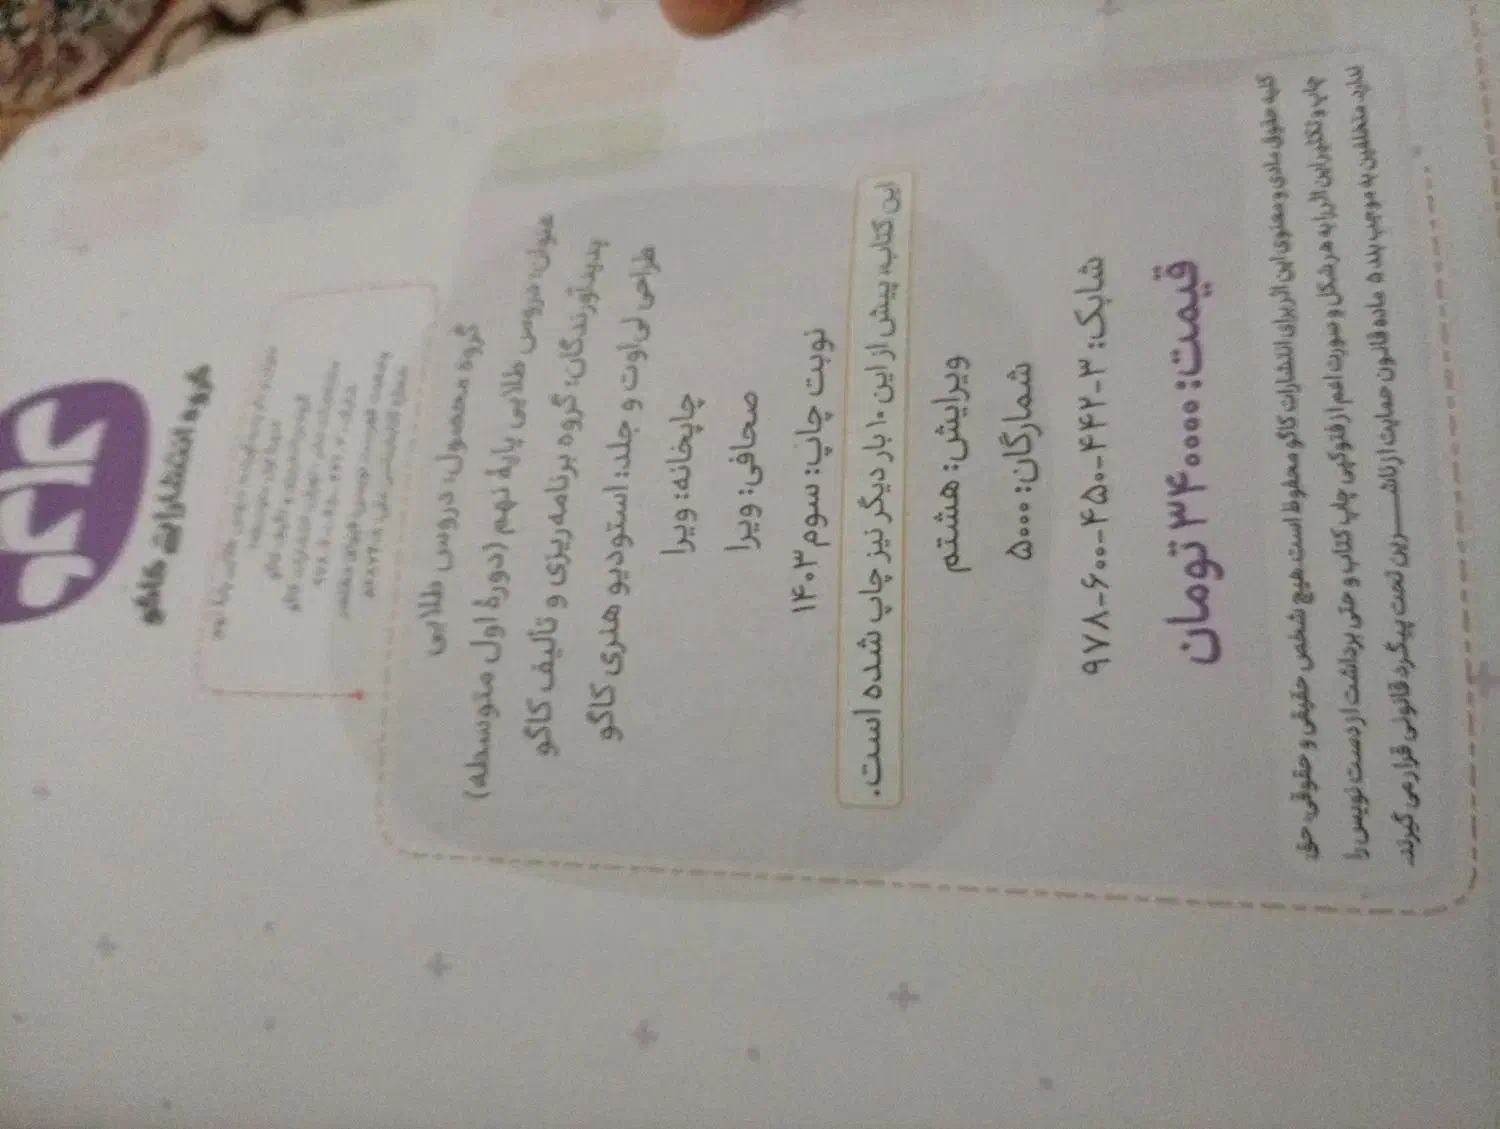 کاگو
گروه انتشارات کاگو
گروه محصول: دروس طلایی
عنوان: دروس طلایی پایهٔ نهم (دورهٔ اول متوسطه)
پدیدآورندگان: گروه برنامه‌ریزی و تألیف کاگو
طراحی لی‌اوت و جلد: استودیو هنری کاگو
چاپخانه: ویرا
صحافی: ویرا
نوبت چاپ: سوم ۱۴۰۳
این کتاب، پیش از این ۱۰ بار دیگر نیز چاپ شده است.
ویرایش: هشتم
شمارگان: ۵۰۰۰
شابک: ۳-۴۴۲-۴۵۰-۶۰۰-۹۷۸
قیمت: ۳۴۰۰۰۰ تومان
کلیه حقوق مادی و معنوی این اثر برای انتشارات کاگو محفوظ است. هیچ شخص حقیقی و حقوقی، حق
چاپ و تکثیر این اثر را به هر شکل و صورت اعم از فتوکپی، چاپ کتاب و حتی برداشت از دست نویس را
ندارد. متخلفین به موجب بند ۵ ماده قانون حمایت از ناشرین تحت پیگرد قانونی قرار می گیرند.